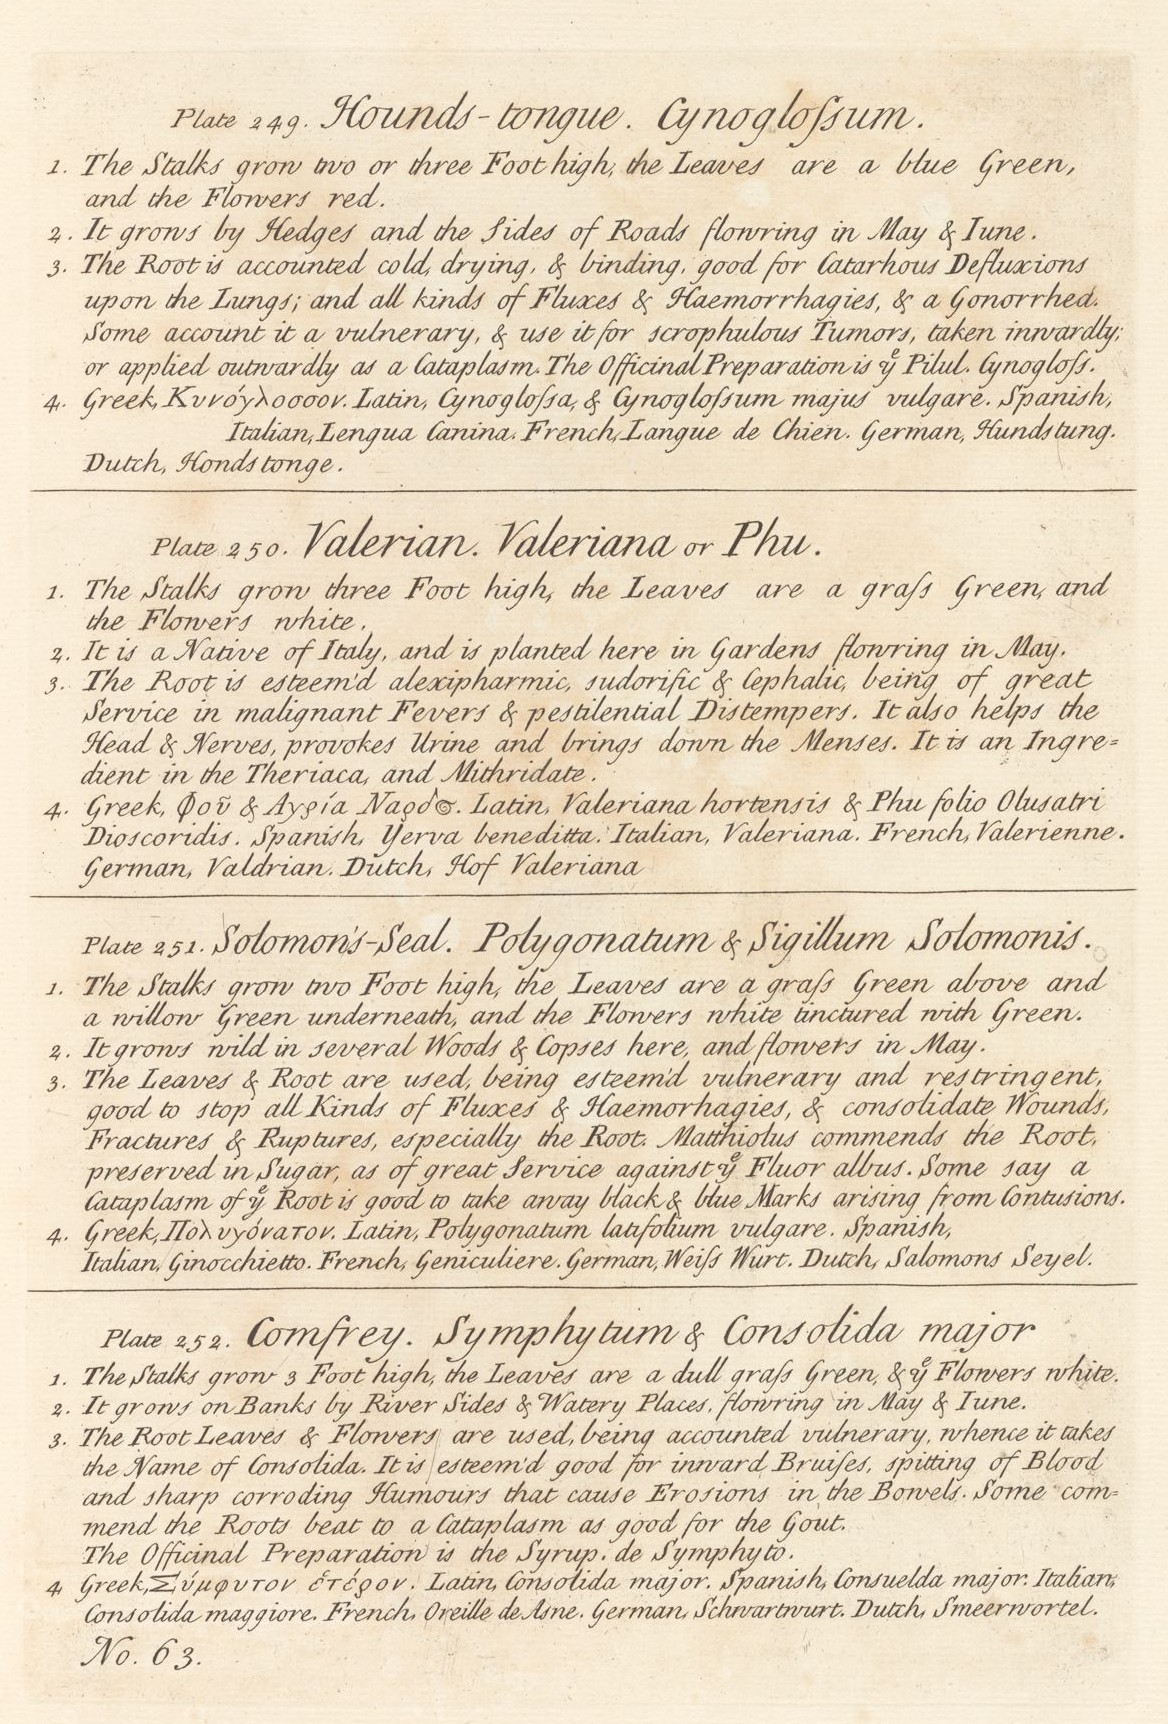 Plate 249. Hounds-tongue. Cynogloſsum.
1. The Stalks grow two or three Foot high, the Leaves are a blue Green,
and the Flowers red.
2. It grows by Hedges and the Sides of Roads flowring in May & Iune.
3. The Root is accounted cold, drying, & binding, good for Catarhous Defluxions
upon the Lungs; and all kinds of Fluxes & Haemorrhagies, & a Gonorrhea.
Some account it a vulnerary, & use it for scrophulous Tumors, taken inwardly;
or applied outwardly as a Cataplasm. The Officinal Preparation is yͤ Pilul. Cynogloſs.
4. Greek, Κυνόγλοσσον. Latin, Cynogloſsa, & Cynogloſsum majus vulgare. Spanish,
Italian, Lengua Canina. French, Langue de Chien. German, Hundstung.
Dutch, Hondstonge.
Plate 250. Valerian. Valeriana or Phu.
1. The Stalks grow three Foot high, the Leaves are a graſs Green, and
the Flowers white.
2. It is a Native of Italy, and is planted here in Gardens flowring in May.
3. The Root is esteem'd alexipharmic, sudorific & Cephalic, being of great
Service in malignant Fevers & pestilential Distempers. It also helps the
Head & Nerves, provokes Urine and brings down the Menses. It is an Ingre=
dient in the Theriaca, and Mithridate.
4. Greek, Φοῦ & Αγρία Ναρδος. Latin, Valeriana hortensis & Phu folio Olusatri
Dioscoridis. Spanish, Yerva beneditta. Italian, Valeriana. French, Valerienne.
German, Valdrian. Dutch, Hof Valeriana
Plate 251. Solomon's-Seal. Polygonatum & Sigillum Solomonis.
1. The Stalks grow two Foot high, the Leaves are a graſs Green above and
a willow Green underneath, and the Flowers white tinctured with Green.
2. It grows wild in several Woods & Copses here, and flowers in May.
3. The Leaves & Root are used, being esteem'd vulnerary and restringent,
good to stop all Kinds of Fluxes & Haemorhagies, & consolidate Wounds,
Fractures & Ruptures, especially the Root. Matthiolus commends the Root,
preserved in Sugar, as of great Service against yͤ Fluor albus. Some say a
Cataplasm of yͤ Root is good to take away black & blue Marks arising from Contusions.
4. Greek, Πολυγόνατον. Latin, Polygonatum latifolium vulgare. Spanish,
Italian, Ginocchietto. French, Geniculiere. German, Weiſs Wurt. Dutch, Salomons Seyel.
Plate 252. Comfrey. Symphytum & Consolida major
1. The Stalks grow 3 Foot high, the Leaves are a dull graſs Green, & yͤ Flowers white.
2. It grows on Banks by River Sides & Watery Places, flowring in May & Iune.
3. The Root Leaves & Flowers are used, being accounted vulnerary, whence it takes
the Name of Consolida. It is esteem'd good for inward Bruiſes, spitting of Blood
and sharp corroding Humours that cause Erosions in the Bowels. Some com=
mend the Roots beat to a Cataplasm as good for the Gout.
The Officinal Preparation is the Syrup. de Symphyto.
4 Greek, Σύμφυτον ἑτέρον. Latin, Consolida major. Spanish, Consuelda major. Italian,
Consolida maggiore. French, Oreille de Asne. German, Schwartwurt. Dutch, Smeerwortel.
No. 63.